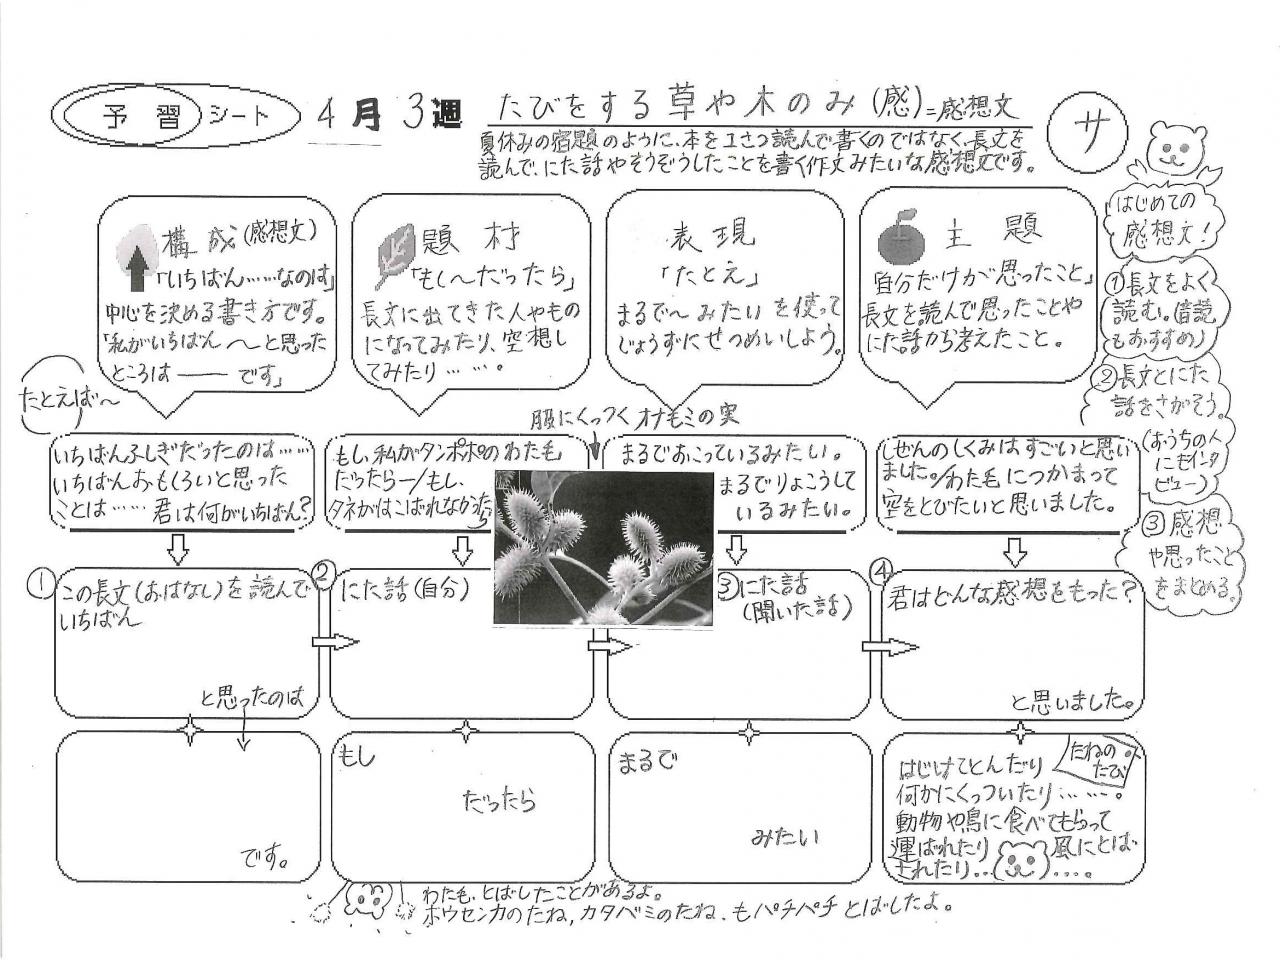 予習シート
4月3週
たびをする草や木のみ(感)=感想文
夏休みの宿題のように、本を1さつ読んで書くのではなく、長文を
読んで、にた話やそうぞうしたことを書く作文みたいな感想文です。
サ
構成(感想文)
「いちばん……なのは」
中心を決める書き方です。
「私がいちばん 〜と思った
ところは―― です」
題材
「もし〜だったら」
長文に出てきた人やもの
になってみたり、空想し
てみたり……。
表現
「たとえ」
まるで〜みたいを使って
じょうずにせつめいしよう。
主題
「自分だけが思ったこと」
長文を読んで思ったことや
にた話から考えたこと。
はじめての
感想文!
①長文をよく
読む。(音読
もおすすめ)
②長文とにた
話をさがそう。
(おうちの人
にもインタ
ビュー)
③感想
や思ったこと
をまとめる。
たとえば〜
服にくっつくオナモミの実
いちばんふしぎだったのは……
いちばんおもしろいと思った
ことは…… 君は何がいちばん?
もし、私がタンポポのわた毛
だったら―/もし、
タネがはこばれなかったら
まるでおこっているみたい。
まるでりょこうして
いるみたい。
しぜんのしくみはすごいと思い
ました。/わた毛につかまって
空をとびたいと思いました。
①この長文(おはなし)を読んで
いちばん
と思ったのは
です。
②にた話(自分)
もし
だったら
③にた話
(聞いた話)
まるで
みたい
④君はどんな感想をもった?
と思いました。
たねの
たび
はじけてとんだり
何かにくっついたり……。
動物や鳥に食べてもらって
運ばれたり 風にとば
されたり… ….。
わた毛、とばしたことがあるよ。
ホウセンカのたね,カタバミのたね、もパチパチとばしたよ。